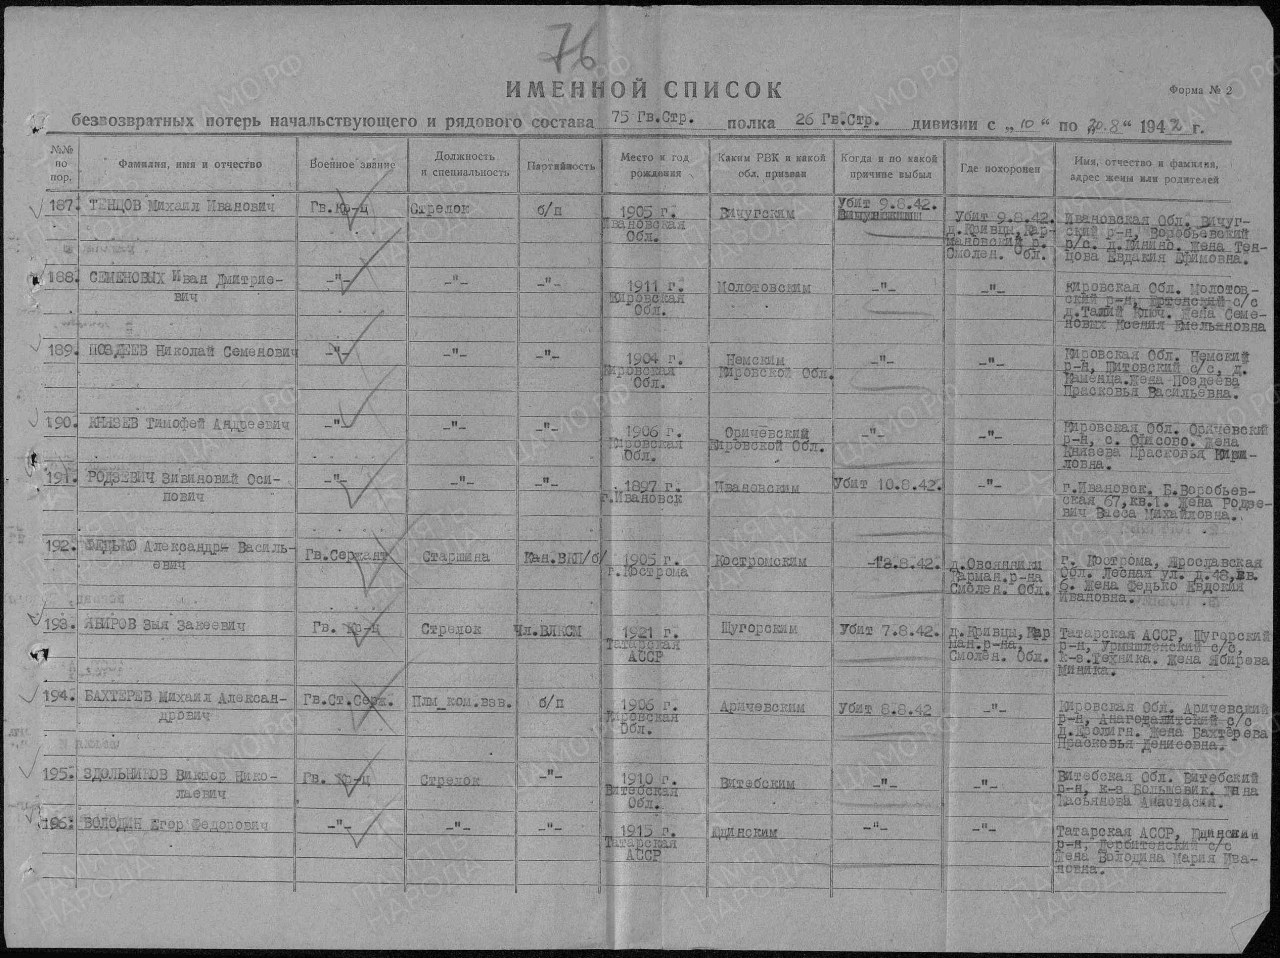 76
ИМЕННОЙ СПИСОК
Форма № 2
безвозвратных потерь начальствующего и рядового состава 75 Гв.Стр. полка 26 Гв.Стр. дивизии с „10“ по 20.8“ 1942 г.
№№ по пор.
Фамилия, имя и отчество
Военное звание
Должность и специальность
Партийность
Место и год рождения
Каким РВК и какой обл. призван
Когда и по какой причине выбыл
Где похоронен
Имя, отчество и фамилия, адрес жены или родителей
187. ТЕНЦОВ Михаил Иванович
Гв.Кр-ц
Стрелок
б/п
1905 г.
Ивановская
Обл.
Вичугским
Убит 9.8.42.
Убит 9.8.42.
д.Кривцы,Кар-
мановский р.
Смолен. Обл.
Ивановская Обл. Вичуг-
ский р-н, Воробьевский
р/с. д. жена Тен-
цова Евдакия Ефимовна.
188. СЕМЕНОВЫХ Иван Дмитрие-
вич
-"-
-"-
-"-
1911 г.
Кировская
Обл.
Молотовским
-"-
-"-
Кировская Обл. Молотов-
ский р-н, с/с
д.Талий Ключ. Жена Семе-
новых Ксения Емельяновна
189. ПОЗДЕЕВ Николай Семенович
-"-
-"-
-"-
1904 г.
Кировская
Обл.
Немским
Кировской Обл.
-"-
-"-
Кировская Обл. Немский
р-н, Шитовский с/с, д.
Каменца.Жена Поздеева
Прасковья Васильевна.
190. КНЯЗЕВ Тимофей Андреевич
-"-
-"-
-"-
1906 г.
Кировская
Обл.
Оричевский
Кировской Обл.
-"-
-"-
Кировская Обл. Оричевский
р-н, с. Жена
Князева Прасковья Кири-
ловна.
191. РОДЗЕВИЧ Зивиновий Оси-
пович
-"-
-"-
-"-
1897 г.
г.Ивановск
Ивановским
Убит 10.8.42.
-"-
г.Ивановск. Б.Воробьев-
ская 67,кв.1. Жена Родзе-
вич Васса Михайловна.
192. ФЕДЬКО Александр Василь-
евич
Гв.Сержант
Старшина
Кан.ВКП/б/
1905 г.
г.Кострома
Костромским
8.8.42.
д.Овсянники
Карман.р-на
Смолен. Обл.
г. Кострома, Ярославская
Обл. Лесная ул. д.48,кв.
6. Жена Федько Евдокия
Ивановна.
193. ЯБИРОВ Зыя Закеевич
Гв. Кр-ц
Стрелок
Чл.ВЛКСМ
1921 г.
Татарская
АССР
Шугорским
Убит 7.8.42.
д.Кривцы,Кар
ман.р-на,
Смолен. Обл.
Татарская АССР, Шугорский
р-н, Урмышленский с/с,
к-з.Техника. Жена Ябирева
Миника.
194. БАХТЕРЕВ Михаил Алексан-
дрович
Гв.Ст.Серж.
Плм_ком.взв.
б/п
1906 г.
Кировская
Обл.
Аричевским
Убит 8.8.42
-"-
Кировская Обл. Аричевский
р-н, с/с
д.Кролиги. Жена Бахтерева
Прасковья Денисовна.
195. ЗДОЛЬНИКОВ Виктор Нико-
лаевич
Гв. Кр-ц
Стрелок
-"-
1910 г.
Витебская
Обл.
Витебским
-"-
-"-
Витебская Обл. Витебский
р-н, к-з Большевик. Жена
Касьянова Анастасия.
196. ВОЛОДИН Егор Федорович
-"-
-"-
-"-
1915 г.
Татарская
АССР
-"-
-"-
Татарская АССР,
р-н, с/с
Жена Володина Мария Ива-
новна.